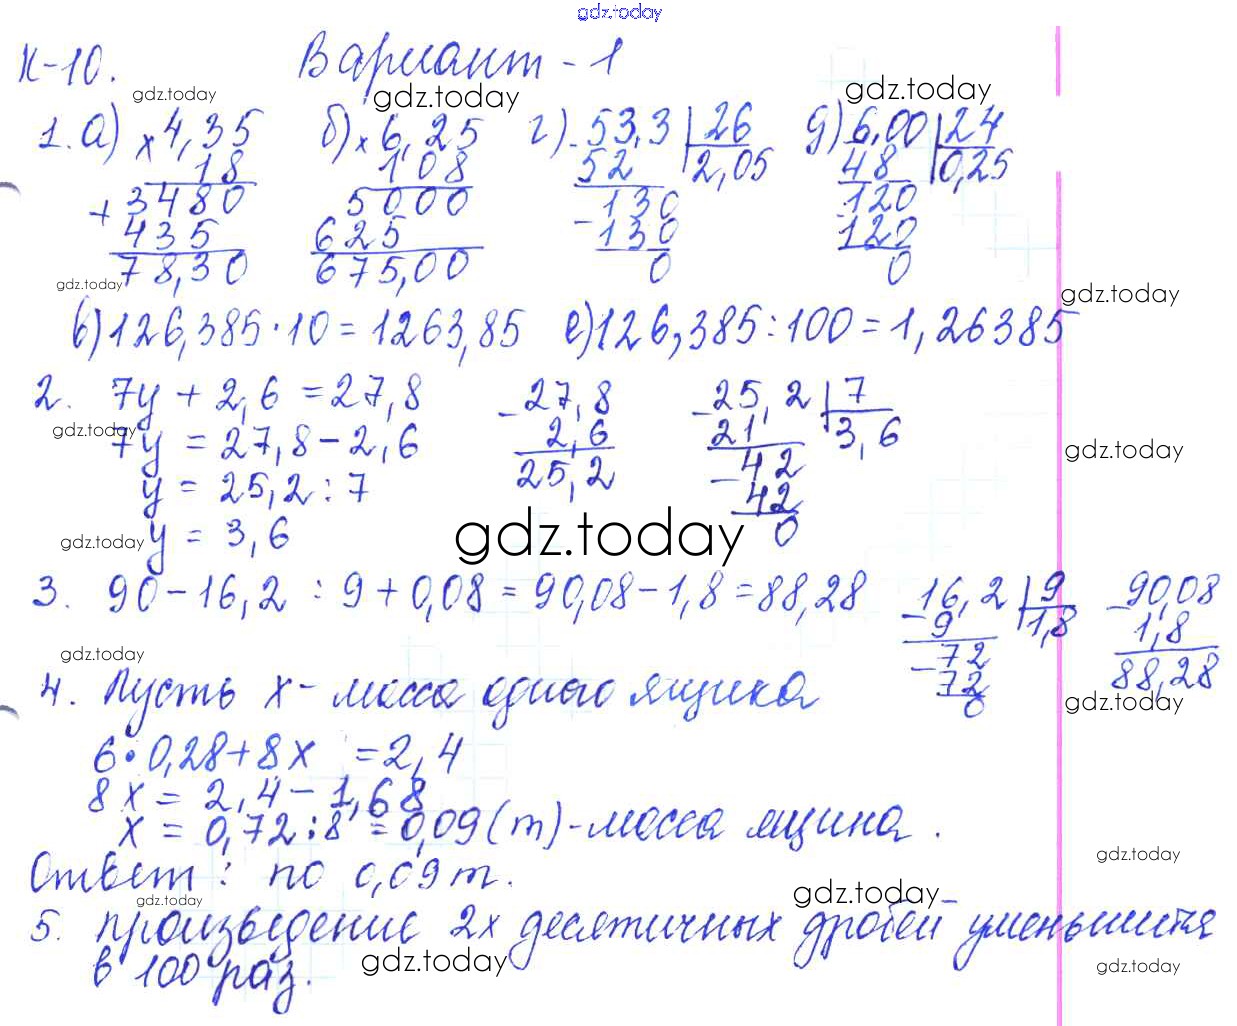 gdz.today
К-10. Вариант - 1
gdz.today gdz.today gdz.today
1. а) × 4,35 б) × 6,25 г) - 53,3 | 26 д) 6,00 | 24
18 108 52 2,05 48 0,25
+ 3480 5000 - 130 120
435 625 130 120
78,30 675,00 0 0
gdz.today gdz.today
в) 126,385 · 10 = 1263,85 е) 126,385 : 100 = 1,26385
2. 7y + 2,6 = 27,8 - 27,8 - 25,2 | 7
gdz.today 7y = 27,8 - 2,6 2,6 21 3,6 gdz.today
y = 25,2 : 7 25,2 - 42
42
gdz.today y = 3,6 gdz.today 0
3. 90 - 16,2 : 9 + 0,08 = 90,08 - 1,8 = 88,28 - 16,2 | 9 - 90,08
9 1,8 1,8
gdz.today - 72 88,28
72
0
4. Пусть x - масса одного ящика gdz.today
6 · 0,28 + 8x = 2,4
8x = 2,4 - 1,68
x = 0,72 : 8 = 0,09 (т) - масса ящика.
gdz.today
Ответ: по 0,09 т.
gdz.today gdz.today
5. произведение 2х десятичных дробей уменьшится
в 100 раз. gdz.today gdz.today